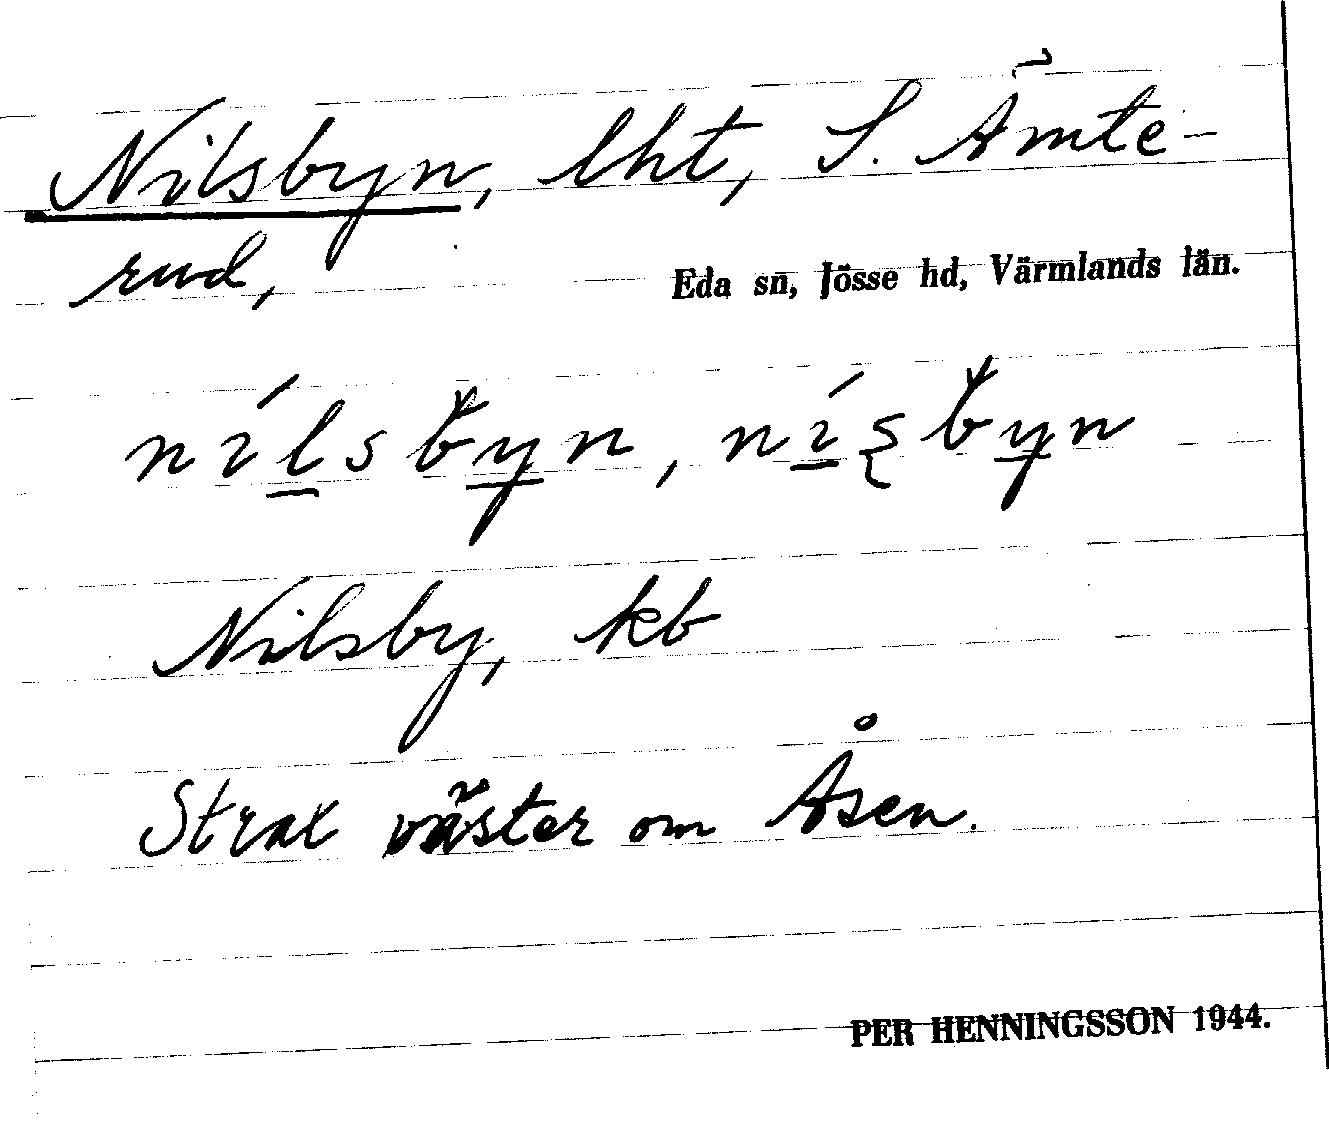 Nilsbyn, lht, S. Ämte-
rud,
Eda sn, Jösse hd, Värmlands län.
nílsbyn, níʂbyn
Nilsby, kb
Strax väster om Åsen.
PER HENNINGSSON 1944.